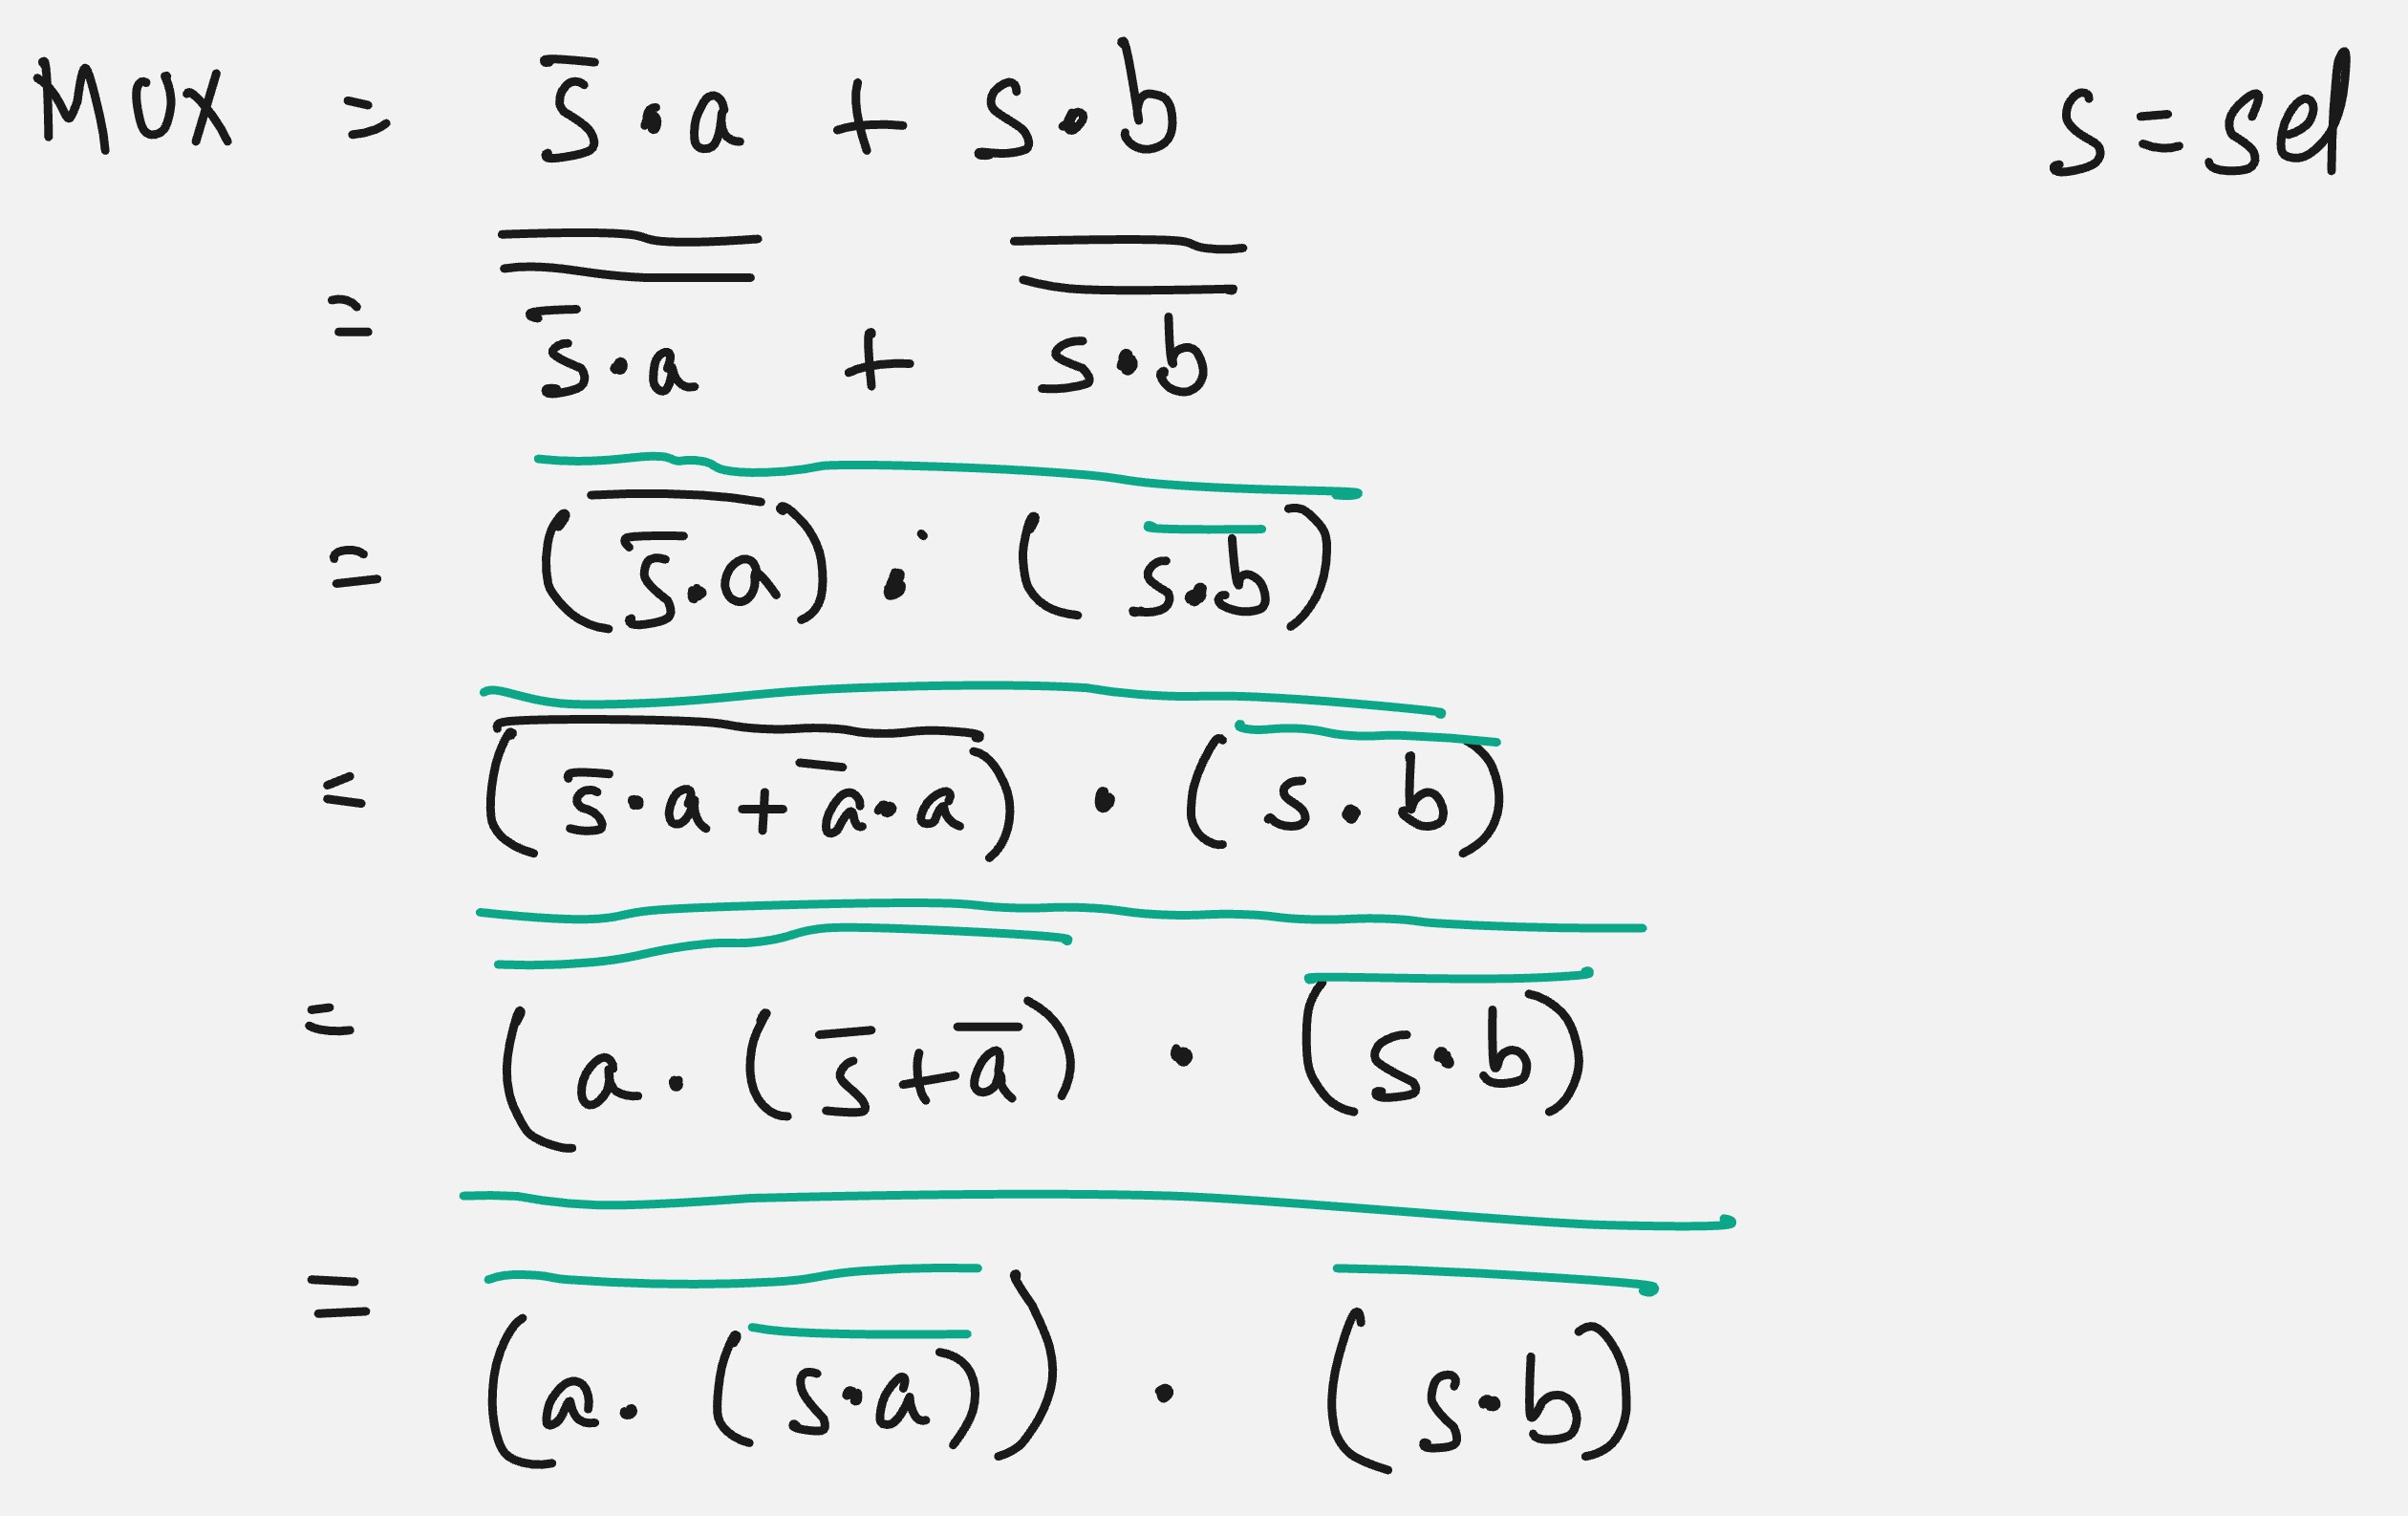 MUX = s̄·a + s·b s=sel
= \overline{\overline{s̄·a}} + \overline{\overline{s·b}}
= \overline{(\overline{s̄·a}) · (\overline{s·b})}
= \overline{(\overline{s̄·a+ā·a}) · (\overline{s·b})}
= \overline{\overline{(a·(s̄+ā)} · \overline{(s·b)}}
= \overline{\overline{(a·(\overline{s·a}))} · \overline{(s·b)}}